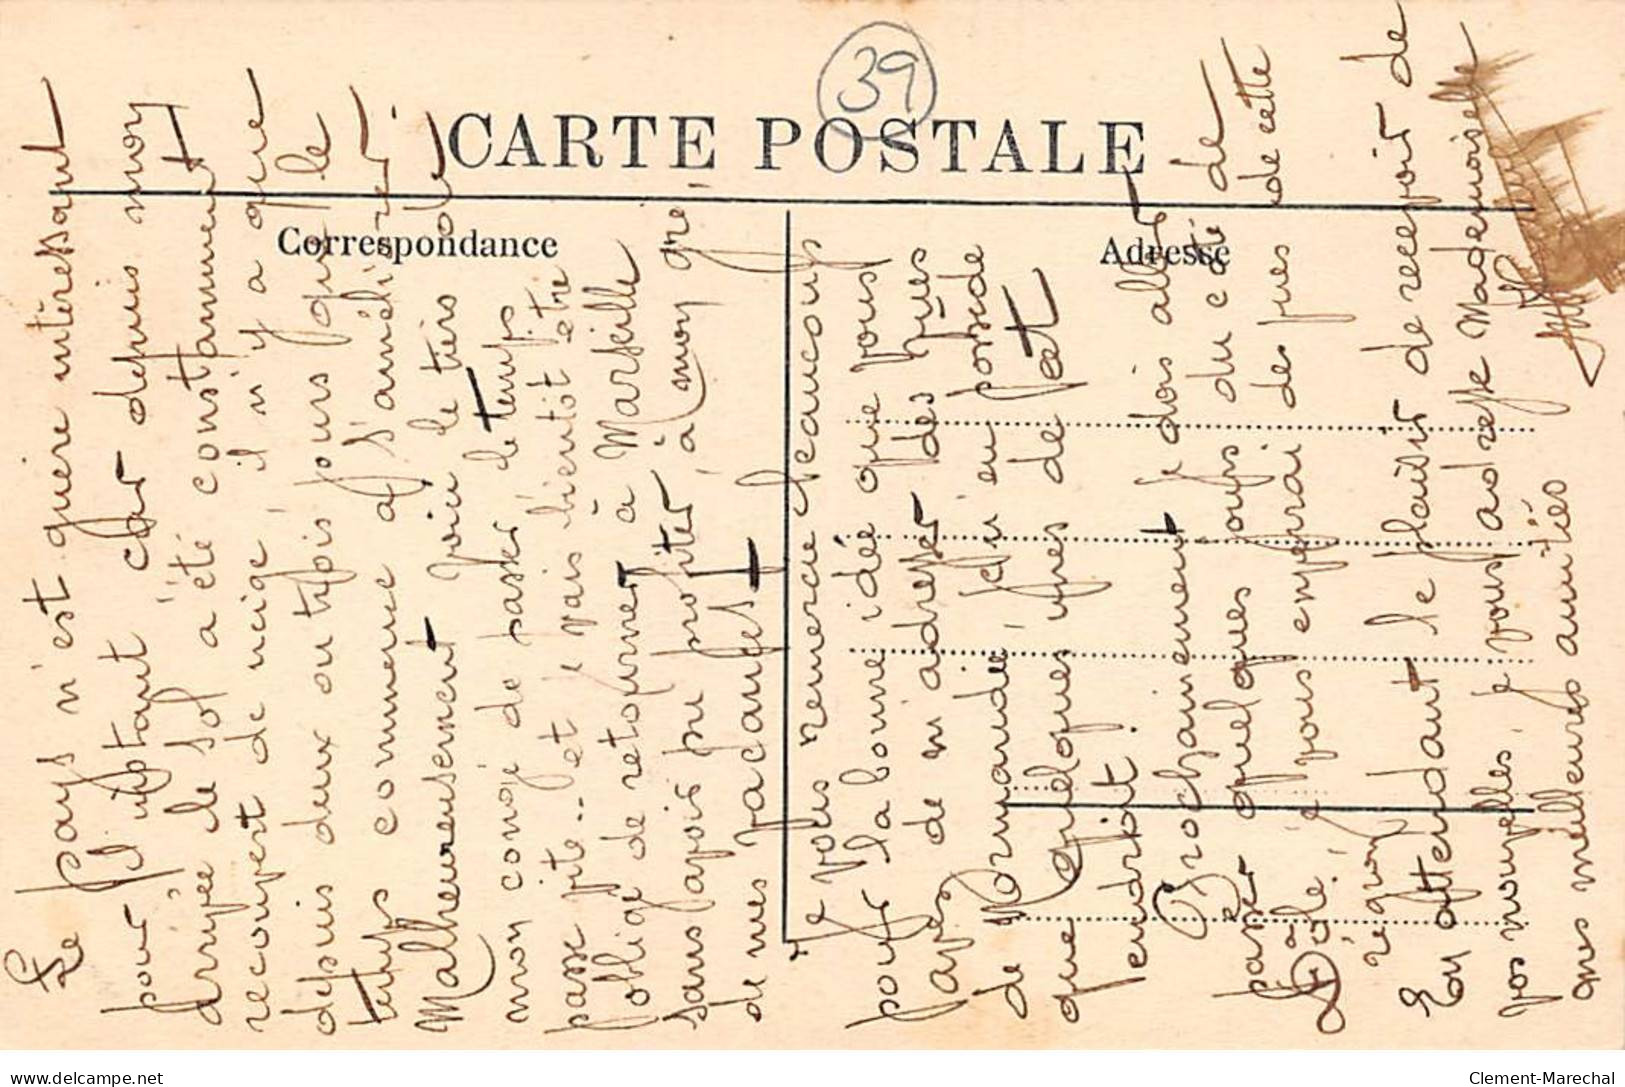 39
CARTE POSTALE
Correspondance
Adresse
Le pays n'est guère intéressant
pour l'instant car depuis mon
arrivée le sol a été constamment
recouvert de neige, il n'y a que
depuis deux ou trois jours que le
temps commence à s'améliorer.
Malheureusement voici le tiers de
mon congé de passé le temps
passe vite.. et je vais bientôt être
obligé de retourner à Marseille
sans avoir pu profiter, à mon gré
de mes vacances!
Je vous remercie beaucoup
pour la bonne idée que vous
avez de m'adresser des vues
de Normandie, j'en possède
que quelques unes de cet
endroit.
Prochainement je dois aller
passer quelques jours du côté de
Dôle, je vous enverrai des vues de cette
région
En attendant le plaisir de recevoir de
vos nouvelles, je vous adresse Mademoiselle
mes meilleures amitiés
Clement-Marechal